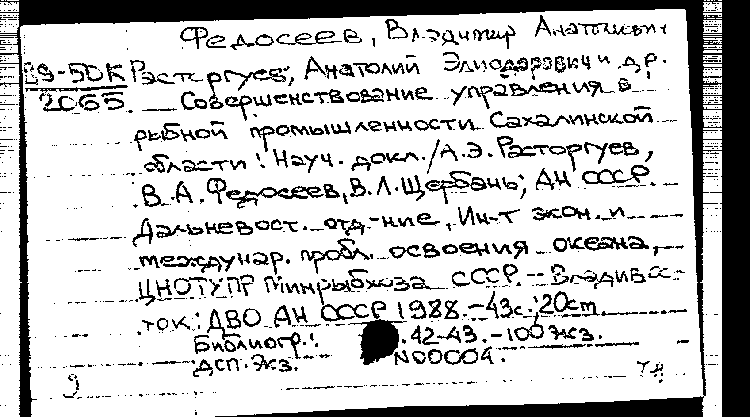 Федосеев, Владимир Анатольевич
89-5DK Расторгуев, Анатолий Элиодорович и др.
2065. Совершенствование управления в
рыбной промышленности Сахалинской
области: Науч. докл./А.Э.Расторгуев,
В.А.Федосеев, В.Л.Щербань; АН СССР.
Дальневост. отд-ние, Ин-т экон. и
междунар. пробл. освоения океана,
ЦНОТУПР Минрыбхоза СССР. - Владивос-
ток: ДВО АН СССР 1988. - 43с.; 20cm.
Библиогр.: .42-43. - 100 экз.
ДСП. Экз. N00004.
9